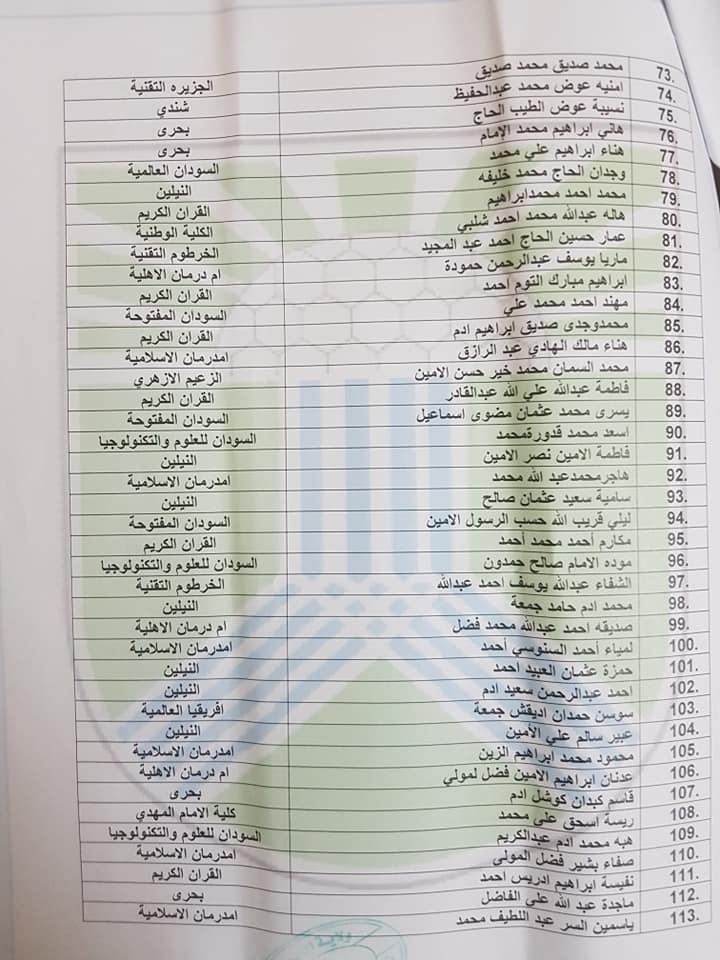 73. محمد صديق محمد صديق الجزيره التقنية
74. امنيه عوض محمد عبدالحفيظ شندي
75. نسيبة عوض الطيب الحاج بحرى
76. هاني ابراهيم محمد الإمام بحرى
77. هناء ابراهيم علي محمد السودان العالمية
78. وجدان الحاج محمد خليفه النيلين
79. محمد احمد محمدابراهيم القران الكريم
80. هاله عبدالله محمد احمد شلبي الكلية الوطنية
81. عمار حسين الحاج احمد عبد المجيد الخرطوم التقنية
82. ماريا يوسف عبدالرحمن حمودة ام درمان الاهلية
83. ابراهيم مبارك التوم أحمد القران الكريم
84. مهند احمد محمد علي السودان المفتوحة
85. محمدوجدى صديق ابراهيم ادم القران الكريم
86. هناء مالك الهادي عبد الرازق امدرمان الاسلامية
87. محمد السمان محمد خير حسن الامين الزعيم الازهري
88. فاطمة عبدالله علي الله عبدالقادر القران الكريم
89. يسرى محمد عثمان مضوى اسماعيل السودان المفتوحة
90. اسعد محمد قدورةمحمد السودان للعلوم والتكنولوجيا
91. فاطمة الامين نصر الامين النيلين
92. هاجرمحمدعبد الله محمد امدرمان الاسلامية
93. سامية سعيد عثمان صالح النيلين
94. ليلي قريب الله حسب الرسول الامين السودان المفتوحة
95. مكارم أحمد محمد أحمد القران الكريم
96. موده الامام صالح حمدون السودان للعلوم والتكنولوجيا
97. الشفاء عبدالله يوسف احمد عبدالله الخرطوم التقنية
98. محمد ادم حامد جمعة النيلين
99. صديقه احمد عبدالله محمد فضل ام درمان الاهلية
100. لمياء أحمد السنوسي أحمد امدرمان الاسلامية
101. حمزة عثمان العبيد احمد النيلين
102. احمد عبدالرحمن سعيد ادم النيلين
103. سوسن حمدان اديقش جمعة افريقيا العالمية
104. عبير سالم علي الأمين النيلين
105. محمود محمد ابراهيم الزين امدرمان الاسلامية
106. عدنان ابراهيم الامين فضل لمولي ام درمان الاهلية
107. قاسم كبدان كوشل ادم بحرى
108. ريسة اسحق علي محمد كلية الامام المهدي
109. هبه محمد ادم عبدالكريم السودان للعلوم والتكنولوجيا
110. صفاء بشير فضل المولي امدرمان الاسلامية
111. نفيسة ابراهيم ادريس احمد القران الكريم
112. ماجدة عبد الله علي الفاضل بحرى
113. ياسمين السر عبد اللطيف محمد امدرمان الاسلامية
ولاية